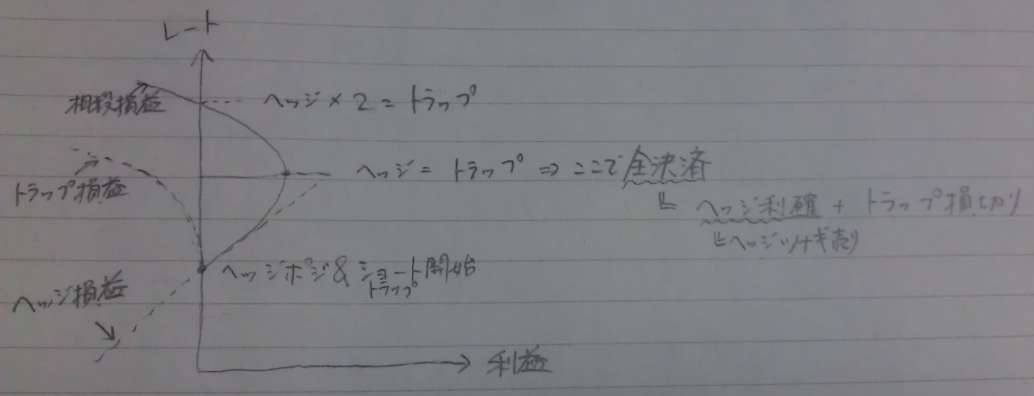 レート
相殺損益
ヘッジ×2=トラップ
ヘッジ=トラップ⇒ここで全決済
トラップ損益
ヘッジ利確+トラップ損切り
ヘッジポジ&ショートトラップ開始
ヘッジ損益
利益